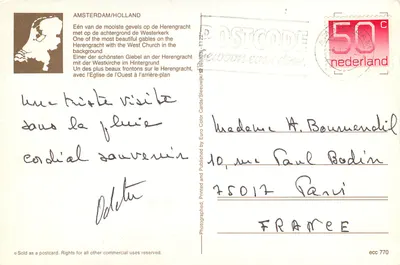 AMSTERDAM/HOLLAND
Eén van de mooiste gevels op de Herengracht
met op de achtergrond de Westerkerk
One of the most beautiful gables on the
Herengracht with the West Church in the
background
Einer der schönsten Giebel an der Herengracht
mit der Westkirche im Hintergrund
Un des plus beaux frontons sur le Herengracht,
avec l'Eglise de l'Ouest à l'arrière-plan
une triste visite
sous la pluie
cordial souvenir
Odette
Sold as a postcard. Rights for all other commercial uses reserved.
Photographed, Printed and Published by Euro Color Cards
POSTCODE
50 c
nederland
Madame A. Boumendil
10, rue Paul Bodin
75017 Paris
FRANCE
ecc 770